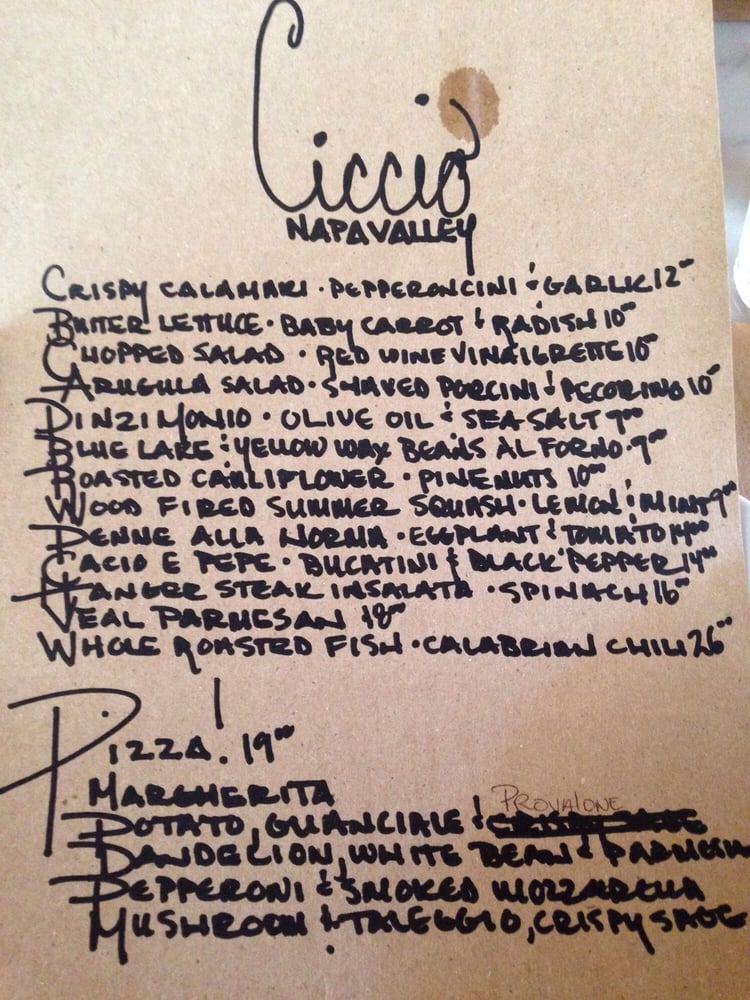 Ciccio
NAPA VALLEY
CRISPY CALAMARI · PEPPERONCINI & GARLIC 12⁰⁰
BUTTER LETTUCE · BABY CARROT & RADISH 10⁰⁰
CHOPPED SALAD · RED WINE VINAIGRETTE 10⁰⁰
ARUGULA SALAD · SHAVED PORCINI & PECORINO 10⁰⁰
PINZIMONIO · OLIVE OIL & SEA SALT 9⁰⁰
BLUE LAKE & YELLOW WAX BEANS AL FORNO · 9⁰⁰
ROASTED CAULIFLOWER · PINENUTS 10⁰⁰
WOOD FIRED SUMMER SQUASH · LEMON & MINT 9⁰⁰
PENNE ALLA NORMA · EGGPLANT & TOMATO 14⁰⁰
CACIO E PEPE · BUCATINI & BLACK PEPPER 14⁰⁰
HANGER STEAK INSALATA · SPINACH 16⁰⁰
VEAL PARMESAN 18⁰⁰
WHOLE ROASTED FISH · CALABRIAN CHILI 26⁰⁰
PIZZA! 19⁰⁰
MARGHERITA
PROVALONE
POTATO, GUANCIALE &
DANDELION, WHITE BEAN & PARMESAN
PEPPERONI & SMOKED MOZZARELLA
MUSHROOM & TALEGGIO, CRISPY SAGE